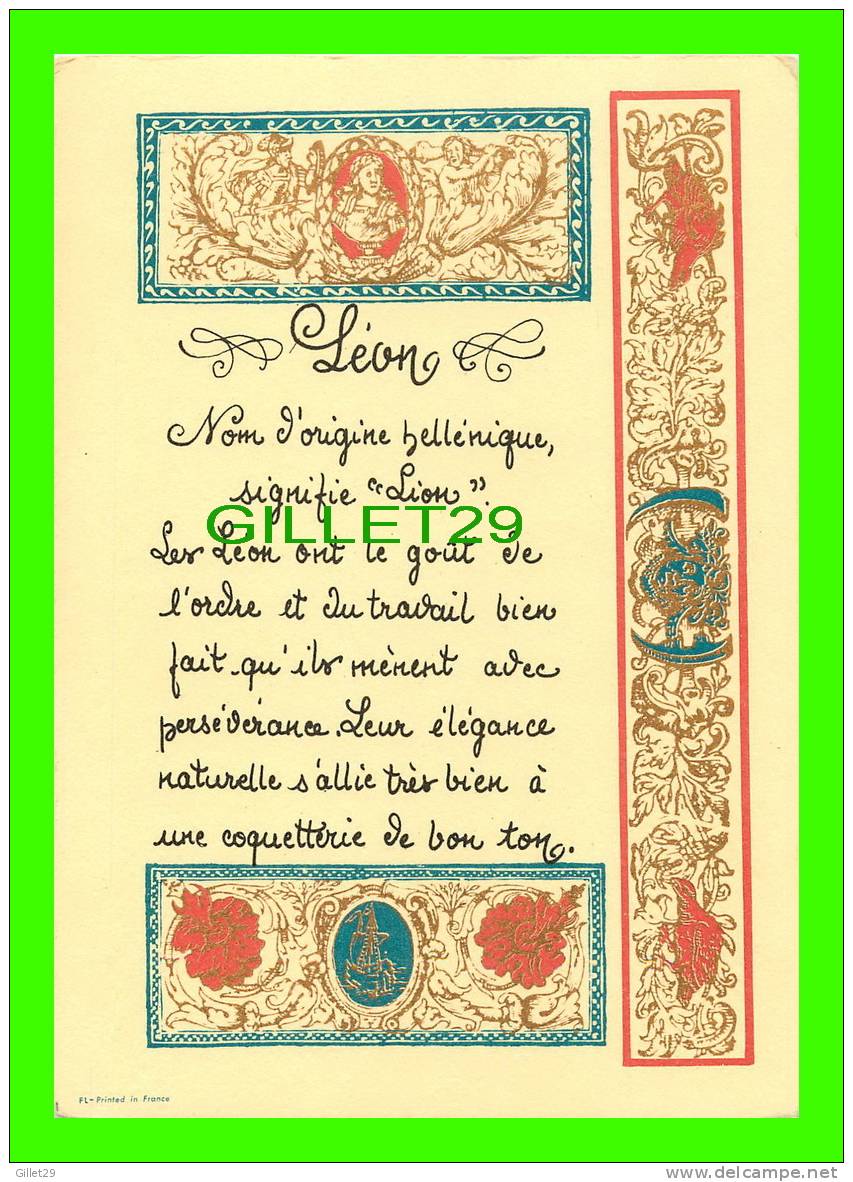 Léon
Nom d'origine hellénique,
signifie "Lion".
GILLET29
Les Léon ont le goût de
l'ordre et du travail bien
fait qu'ils mènent avec
persévérance. Leur élégance
naturelle s'allie très bien à
une coquetterie de bon ton.
FL-Printed in France
Gillet29
www.delcampe.net